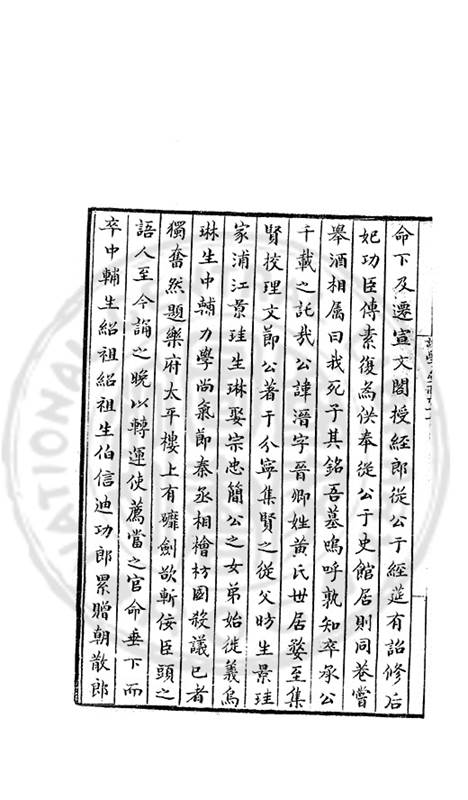 命下及遷宣文閣授經郎從公于經莚有詔修后
妃功臣傳素復為供奉從公于史館居則同巷嘗
舉酒相属曰我死子其銘吾墓嗚呼孰知卒承公
千載之託哉公諱溍字晉卿姓黃氏世居婺至集
賢挍理文節公著于分寧集賢之從父昉生景珪
家浦江景珪生琳娶宗忠簡公之女弟始徙義烏
琳生中輔力學尚氣節秦丞相檜枋國殺議已者
獨奮然題樂府太平樓上有磨劍欲斬佞臣頭之
語人至今誦之晚以轉運使薦當之官命垂下而
卒中輔生紹祖紹祖生伯信迪功郎累贈朝散郎
NATIONAL